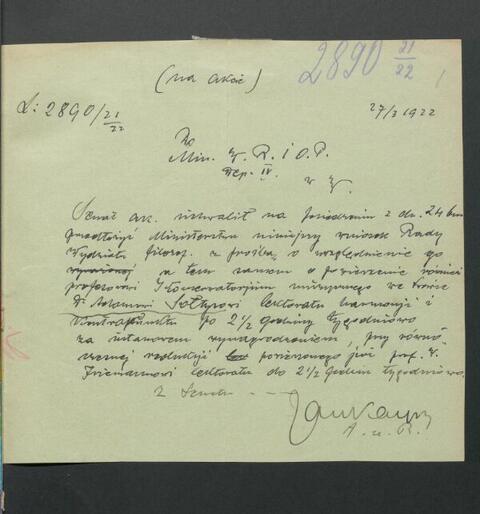 2890 21/22
(na akcie)
L: 2890/21/22
27/3 1922
Do
Min. W. R. i O. P.
Dep. IV.
w W.
Senat ak. uchwalił na posiedzeniu z dn. 24 bm
przedłożyć Ministerstwu niniejszy wniosek Rady
Wydziału filozof. z prośbą o uwzględnienie go
a tem samem o powierzenie
profesorowi Konserwatorjum muzycznego we Lwowie
Dr Adamowi Sołtysowi lektoratu harmonji i
Kontrapunktu po 2 1/2 godziny tygodniowo
za ustawowem wynagrodzeniem, przy równo-
czesnej redukcji powierzonego już prof. 
lektoratu do 2 1/2 godzin tygodniowo.
Z Senatu